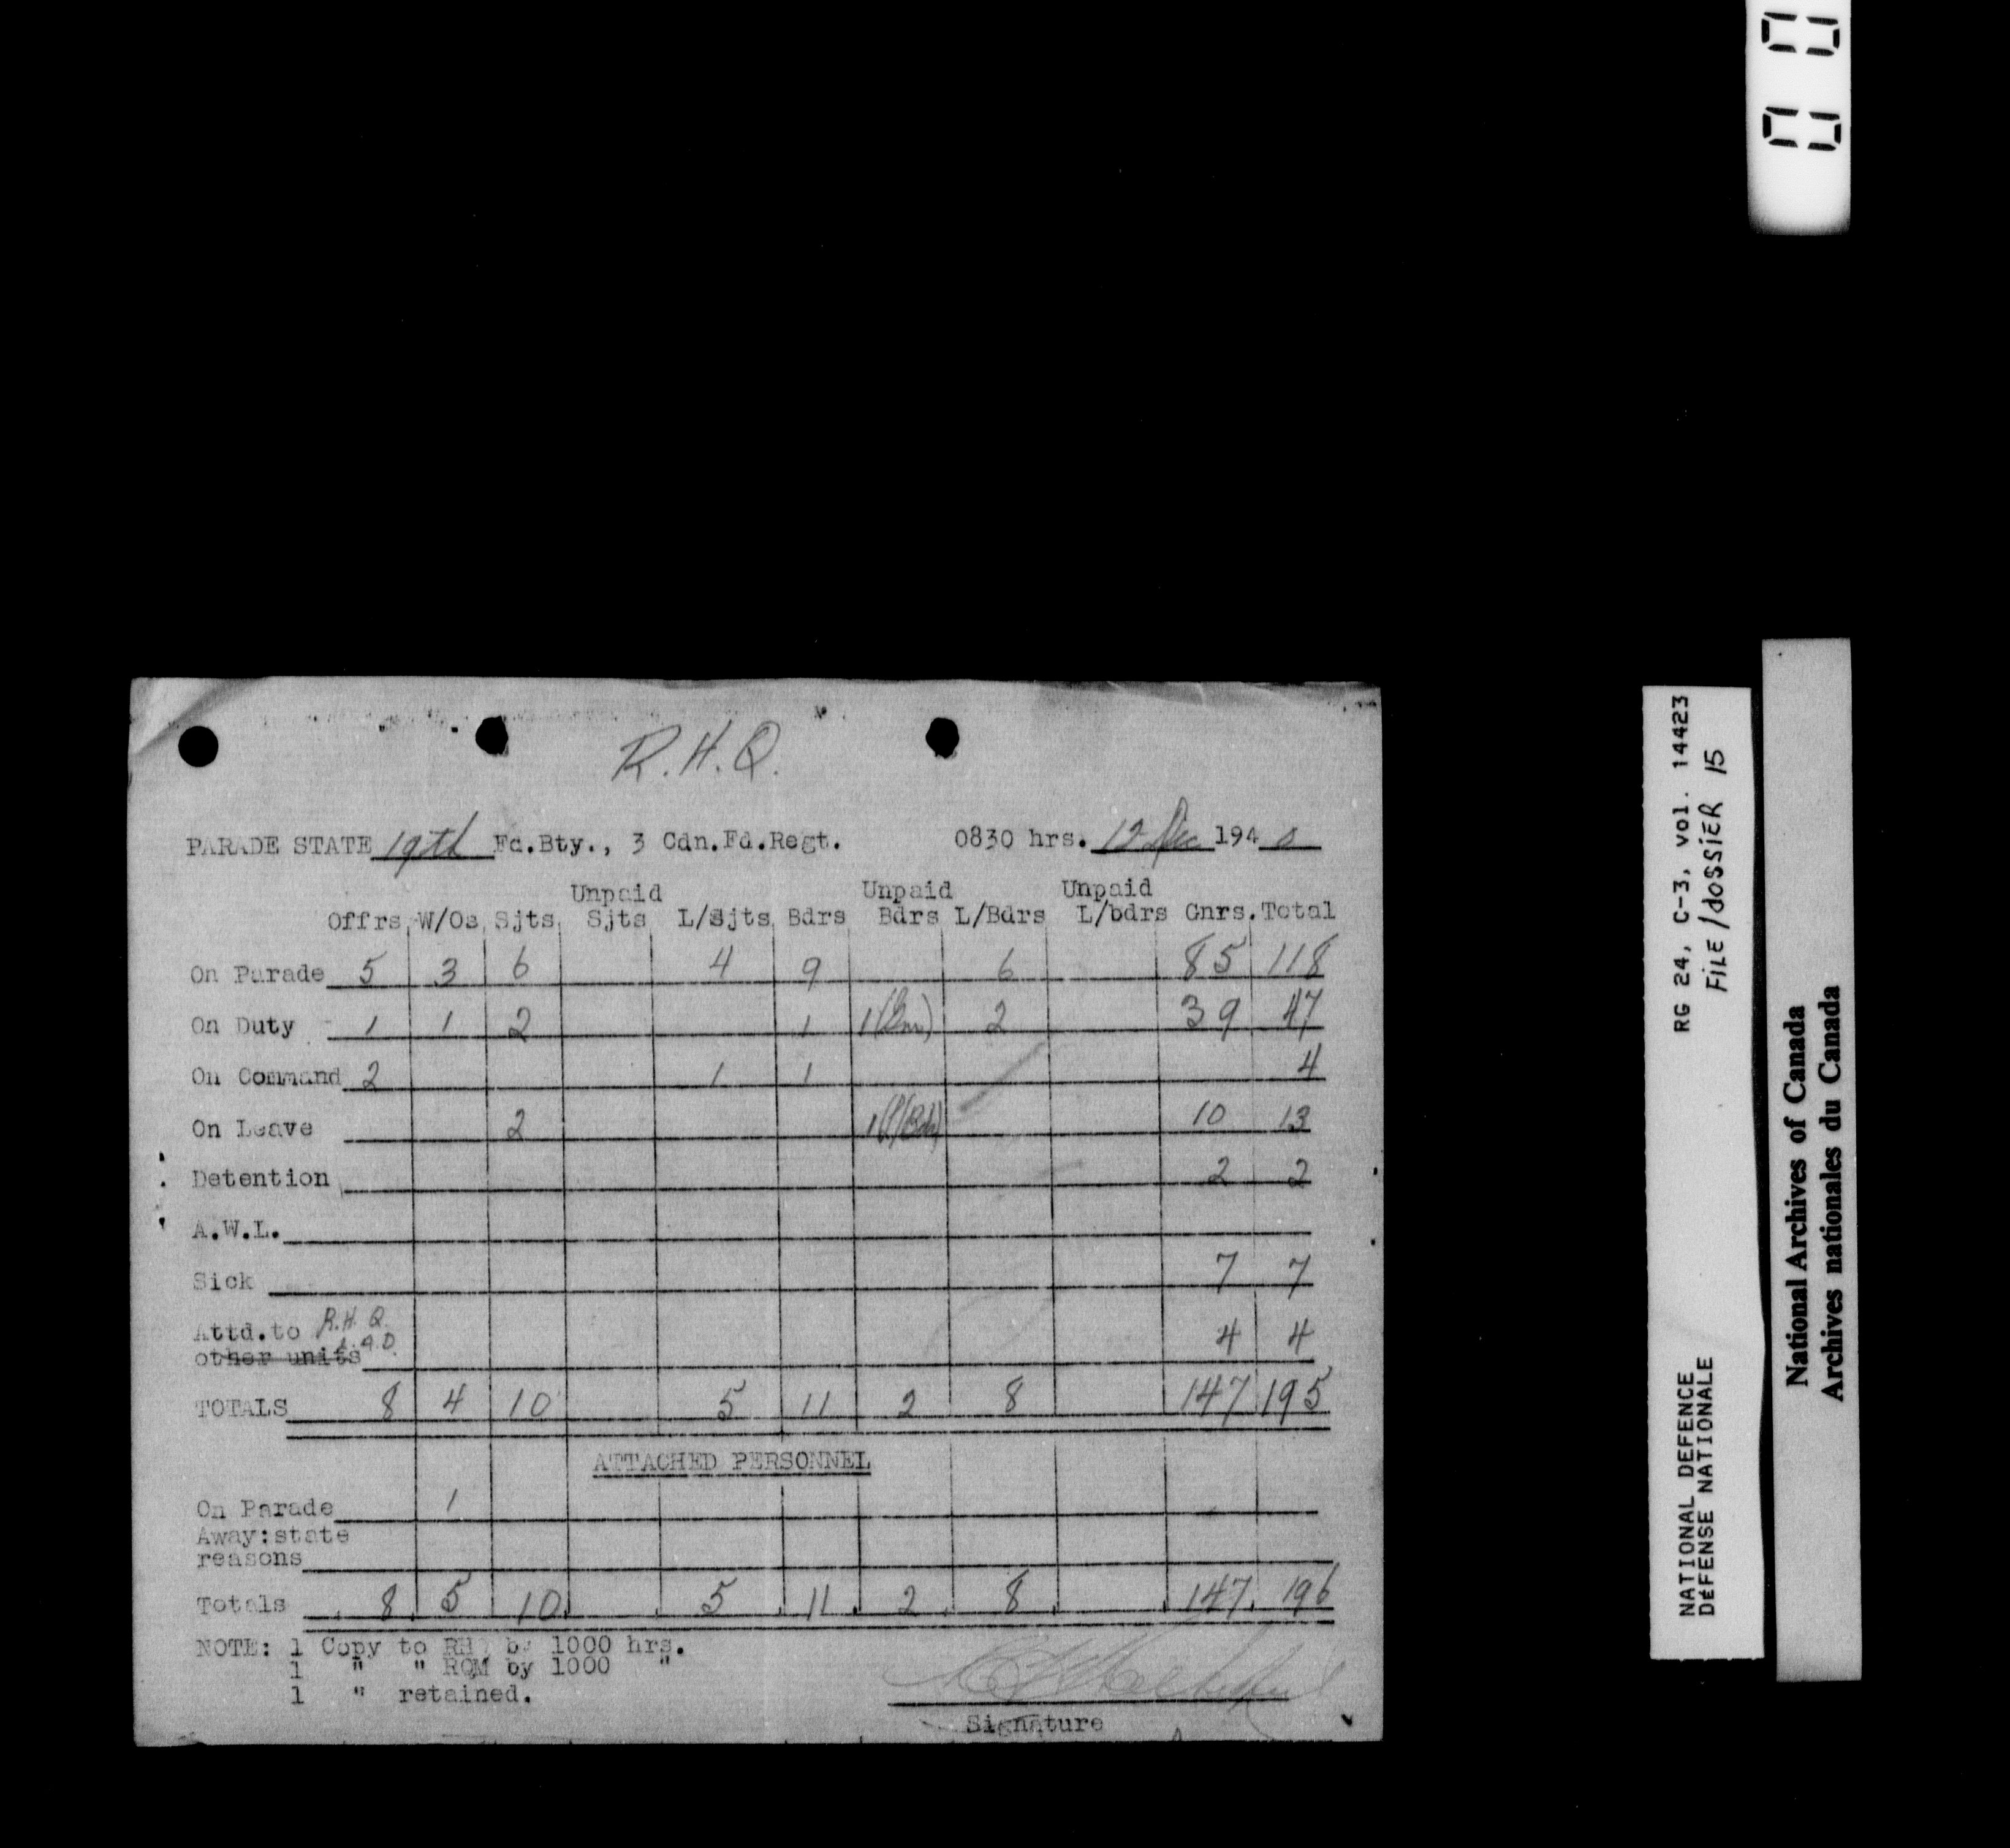 R.H.Q.
PARADE STATE 19th Fd.Bty., 3 Cdn.Fd.Regt. 0830 hrs. 12 Dec 1940
Unpaid Unpaid Unpaid
Offrs W/Os Sjts Sjts L/Sjts Bdrs Bdrs L/Bdrs L/bdrs Gnrs. Total
On Parade 5 3 6 4 9 6 85 118
On Duty 1 1 2 1 1 2 39 47
On Command 2 1 1 4
On Leave 2 1 10 13
Detention 2 2
A.W.L.
Sick 7 7
Attd.to R.H.Q.
other units 4 4
TOTALS 8 4 10 5 11 2 8 147 195
ATTACHED PERSONNEL
On Parade 1
Away:state
reasons
Totals 8 5 10 5 11 2 8 147 196
NOTE: 1 Copy to RH by 1000 hrs.
1 " " RQM by 1000 "
1 " retained.
Signature
RG 24, C-3, vol. 14423
FILE/dossier 15
NATIONAL DEFENCE
DéFENSE NATIONALE
National Archives of Canada
Archives nationales du Canada